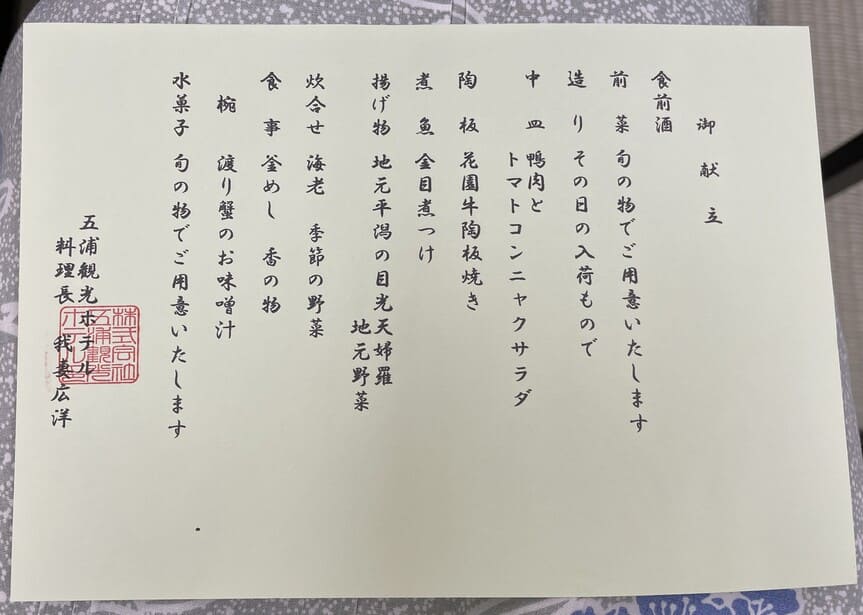 御献立
食前酒
前菜 旬の物でご用意いたします
造り その日の入荷もので
中皿 鴨肉と
トマトコンニャクサラダ
陶板 花園牛陶板焼き
煮魚 金目煮つけ
揚げ物 地元平潟の目光天婦羅
地元野菜
炊合せ 海老 季節の野菜
食事 釜めし 香の物
椀 渡り蟹のお味噌汁
水菓子 旬の物でご用意いたします
五浦観光ホテル
料理長 我妻広洋
株式会社
五浦観光
ホテル